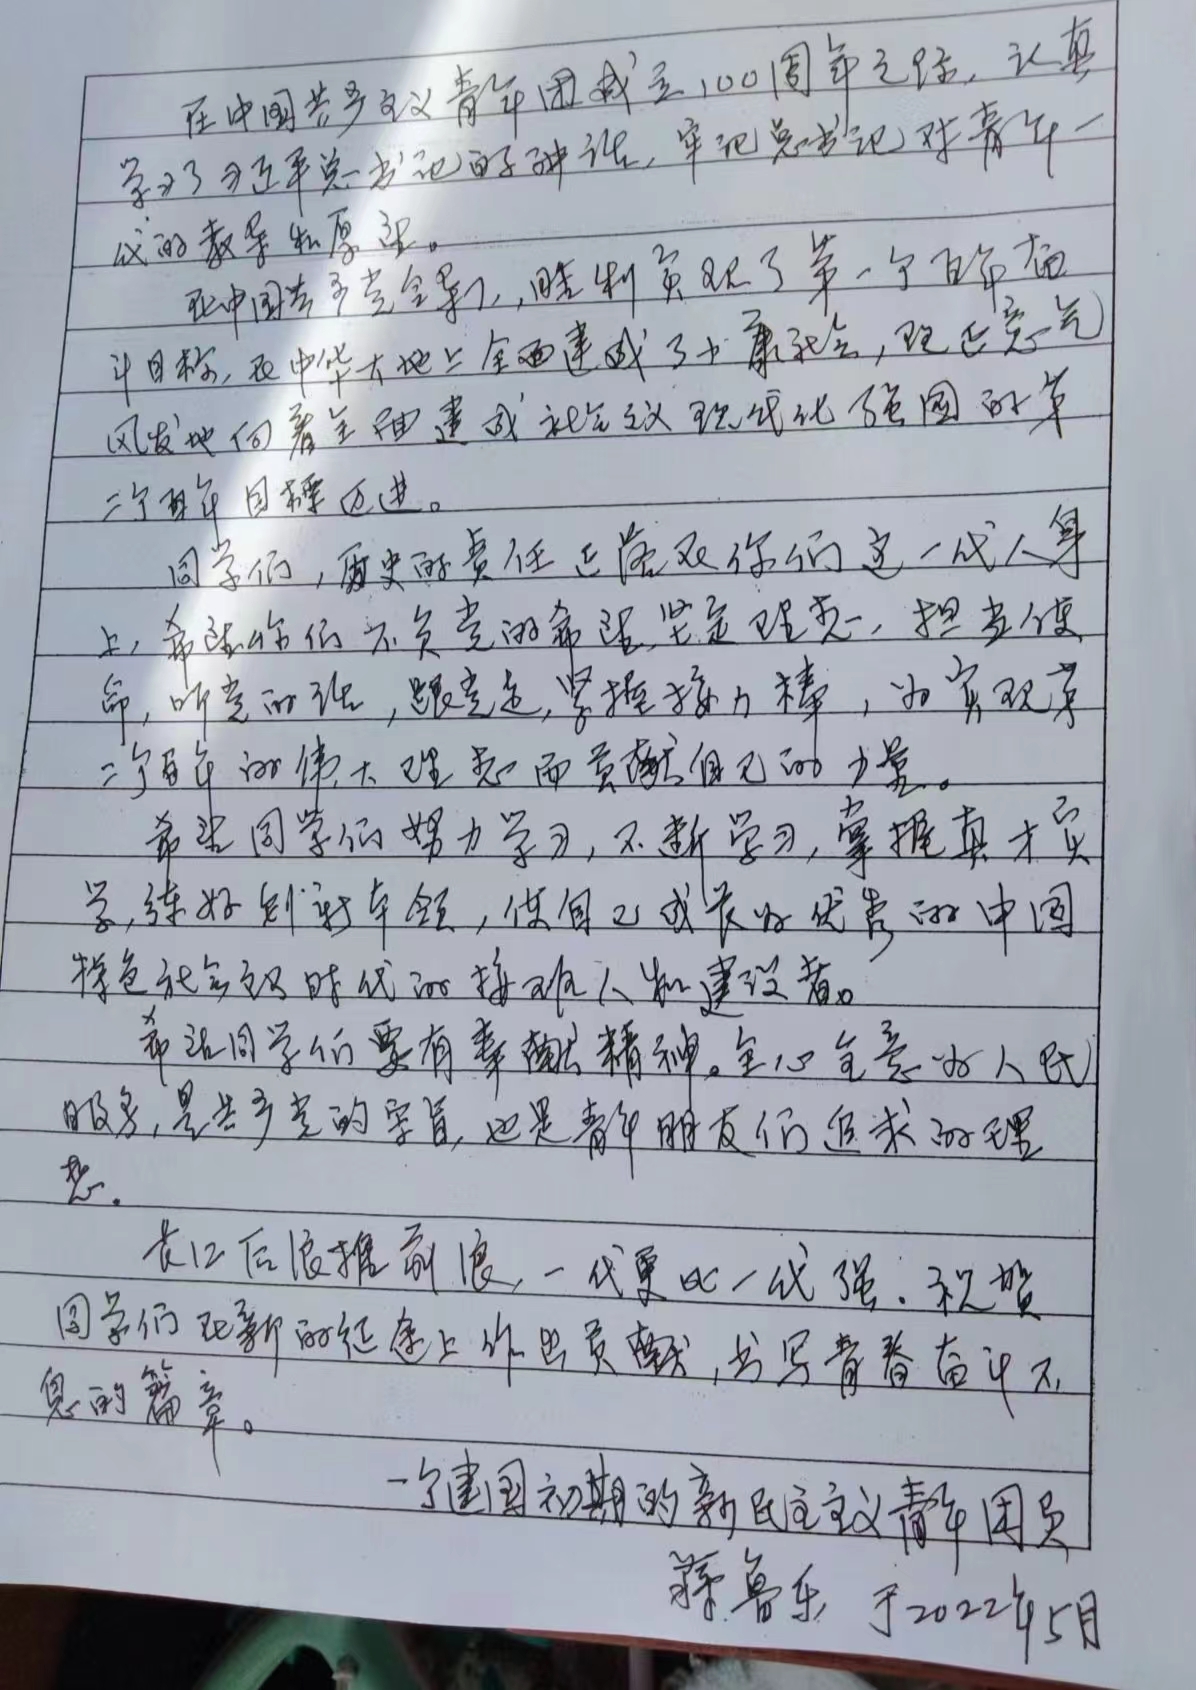 在中国共产主义青年团成立100周年之际，认真
学习了习近平总书记的讲话，牢记总书记对青年一
代的教导和厚望。
在中国共产党全导下，胜利实现了第一个百年奋
斗目标，在中华大地上全面建成了小康社会，现正意气
风发地向着全面建成社会主义现代化强国的第
二个百年目标迈进。
同学们，历史的责任正落在你们这一代人身
上，希望你们不负党的希望，坚定理想，担当使
命，听党的话，跟党走，紧握接力棒，为实现第
二个百年的伟大理想而贡献自己的力量。
希望同学们努力学习，不断学习，掌握真才实
学，练好创新本领，使自己成长为优秀的中国
特色社会主义时代的接班人和建设者。
希望同学们要有奉献精神。全心全意为人民
服务，是共产党的宗旨，也是青年朋友们追求的理
想。
长江后浪推前浪，一代更比一代强。祝贺
同学们在新的征途上作出贡献，书写青春奋斗不
息的篇章。
一个建国初期的新民主主义青年团员
鲁乐 于2022年5月